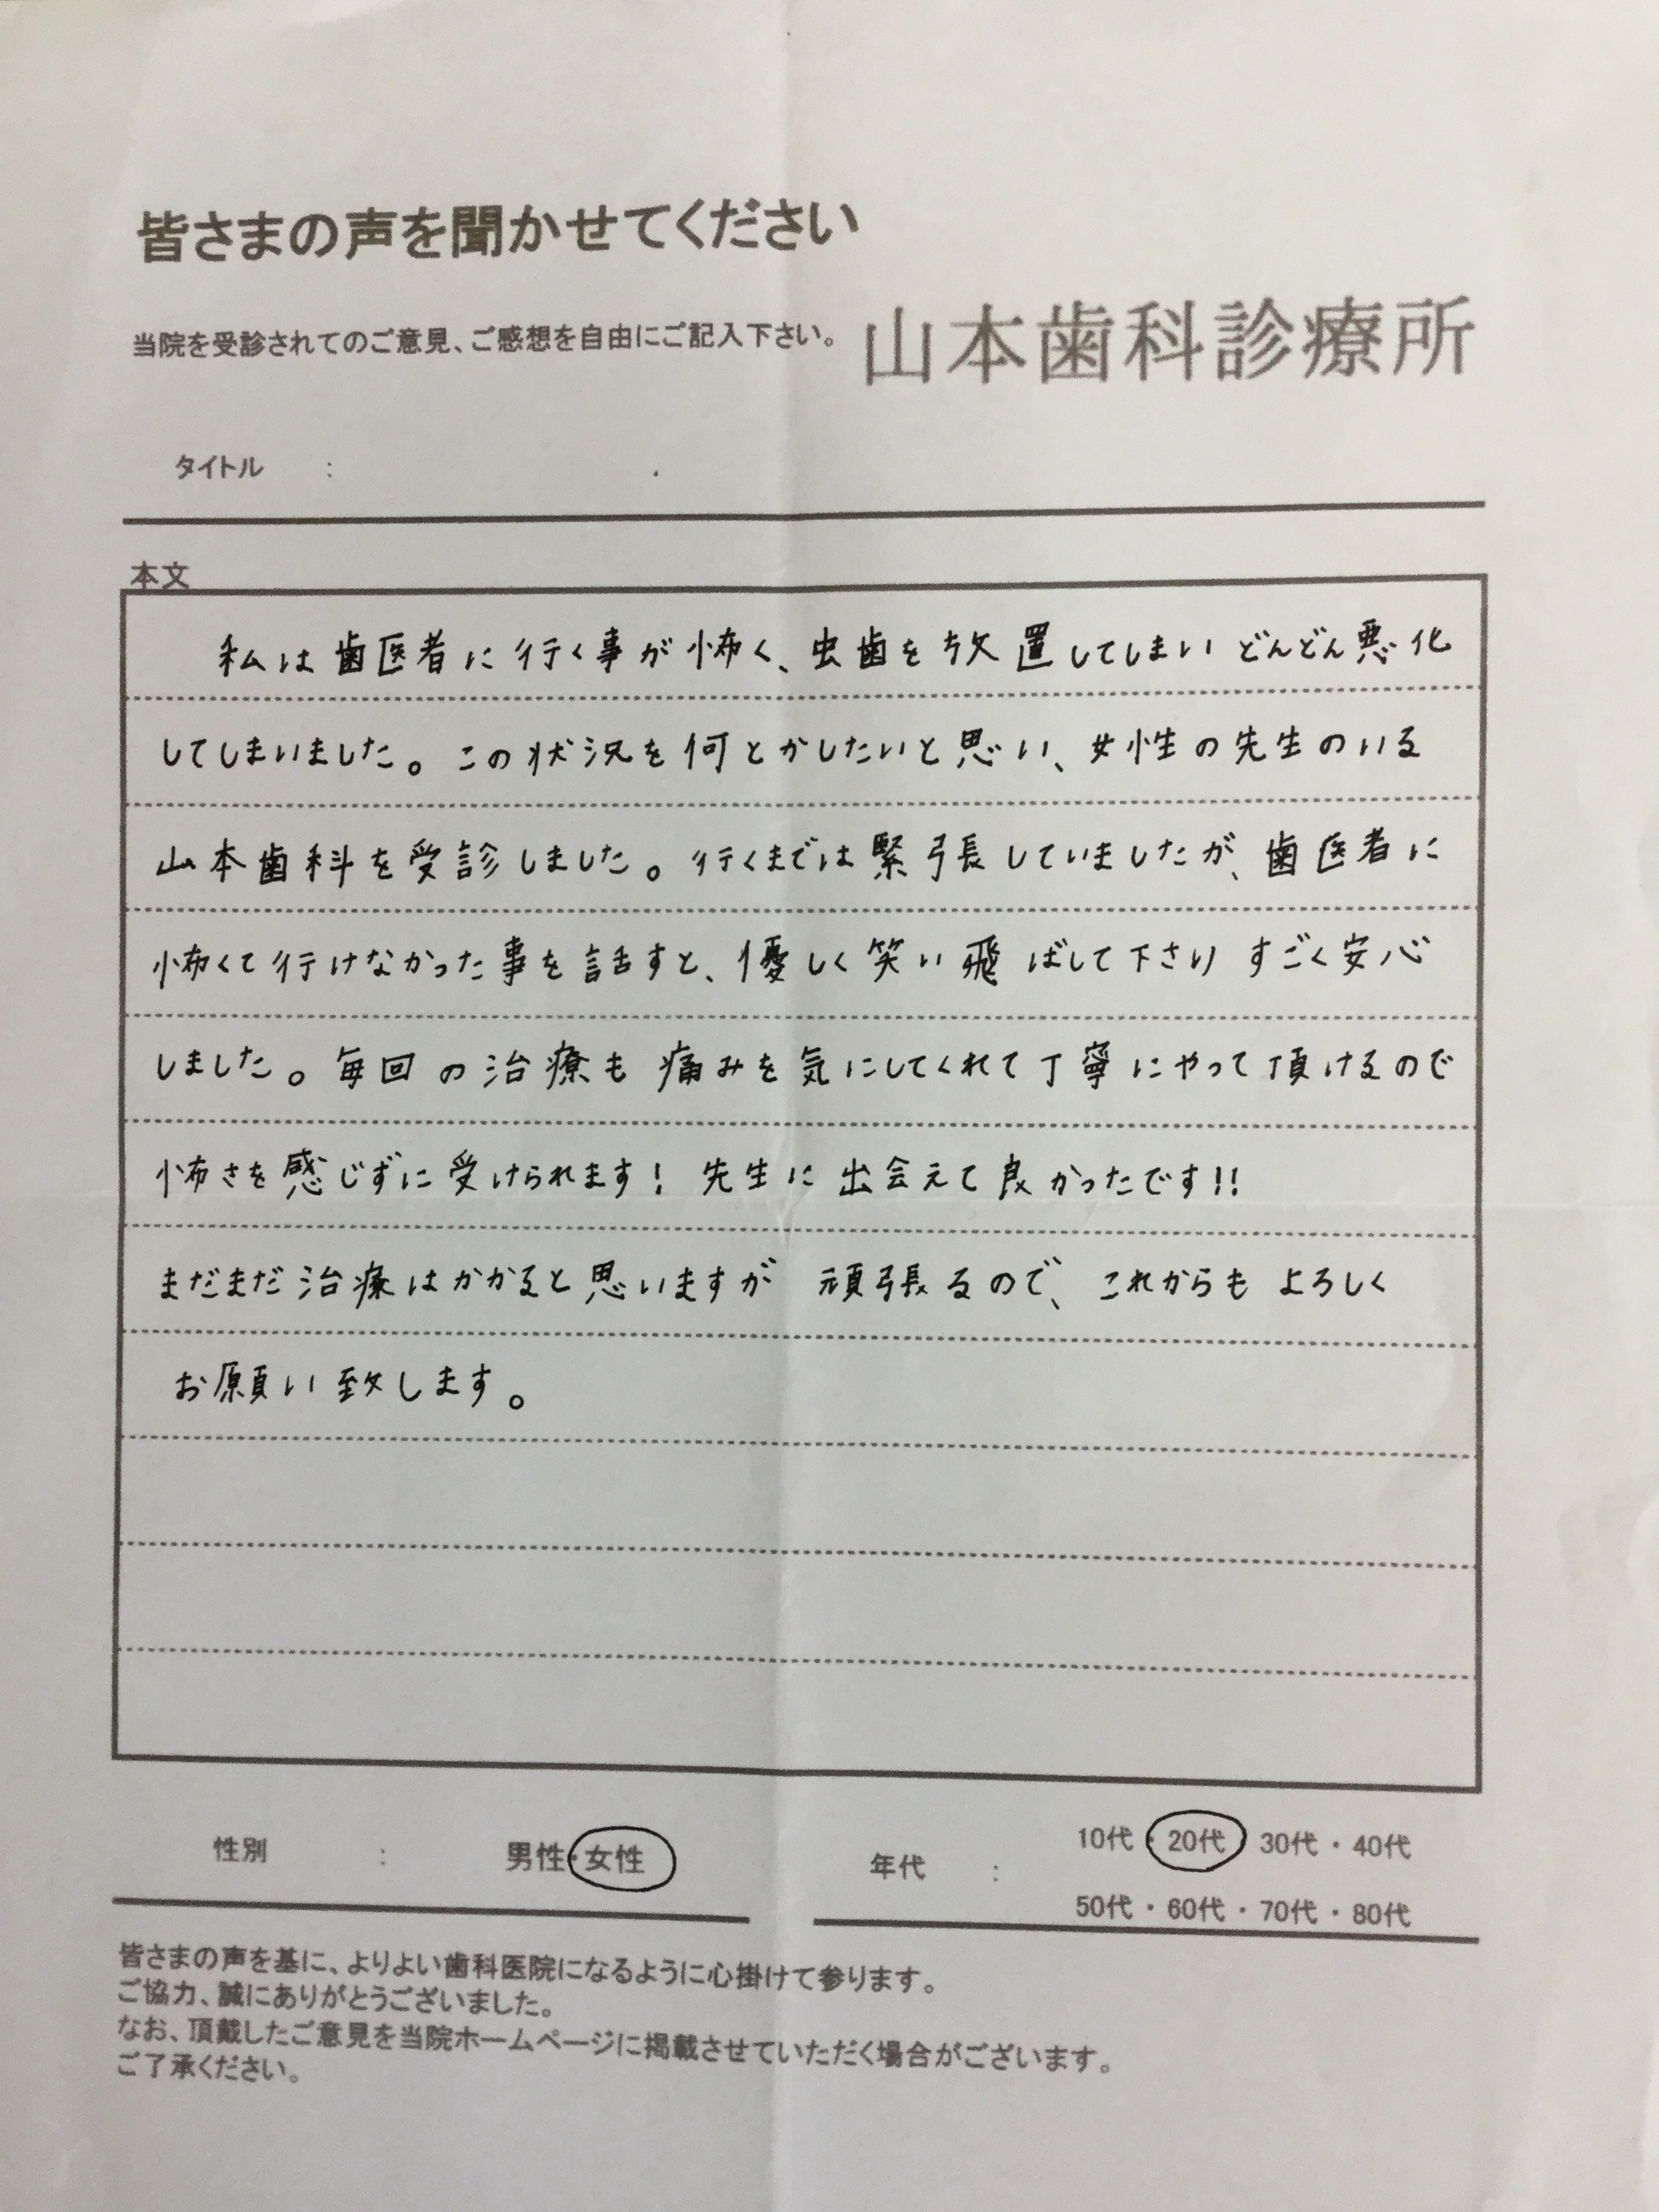 皆さまの声を聞かせてください
当院を受診されてのご意見、ご感想を自由にご記入下さい。 山本歯科診療所
タイトル :
本文
私は歯医者に行く事が怖く、虫歯を放置してしまいどんどん悪化
してしまいました。この状況を何とかしたいと思い、女性の先生のいる
山本歯科を受診しました。行くまでは緊張していましたが、歯医者に
怖くて行けなかった事を話すと、優しく笑い飛ばして下さり すごく安心
しました。毎回の治療も痛みを気にしてくれて丁寧にやって頂けるので
怖さを感じずに受けられます! 先生に出会えて良かったです!!
まだまだ治療はかかると思いますが 頑張るので、これからも よろしく
お願い致します。
性別 : 男性・女性
年代 : 10代・20代・30代・40代
50代・60代・70代・80代
皆さまの声を基に、よりよい歯科医院になるように心掛けて参ります。
ご協力、誠にありがとうございました。
なお、頂戴したご意見を当院ホームページに掲載させていただく場合がございます。
ご了承ください。